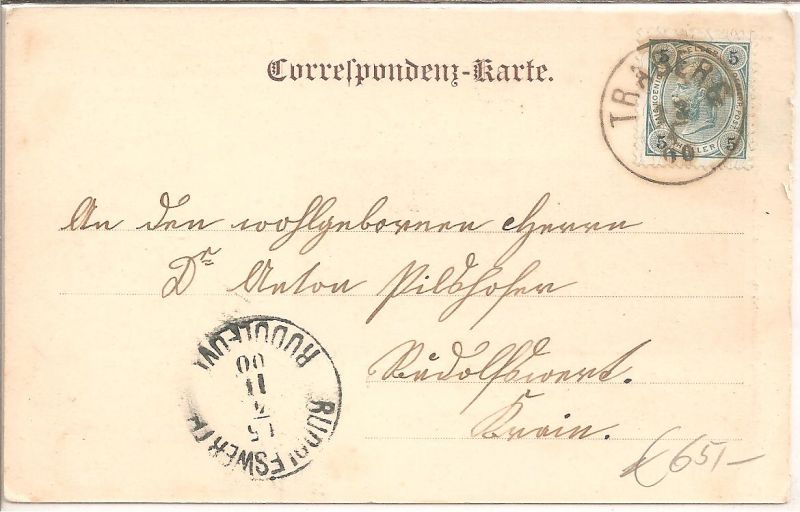 Correspondenz-Karte.
TRABERG
5 5
HELLER
5 5
00
An den wohlgebornen Herrn
Dr Anton Pilshofer
Rudolfswert.
Krain.
RUDOLFSWERTH
RUDOLFOV
00
11
€ 65,–